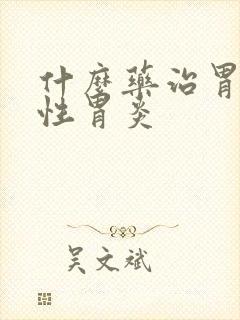 什麼藥治胃
性胃炎
吴文斌